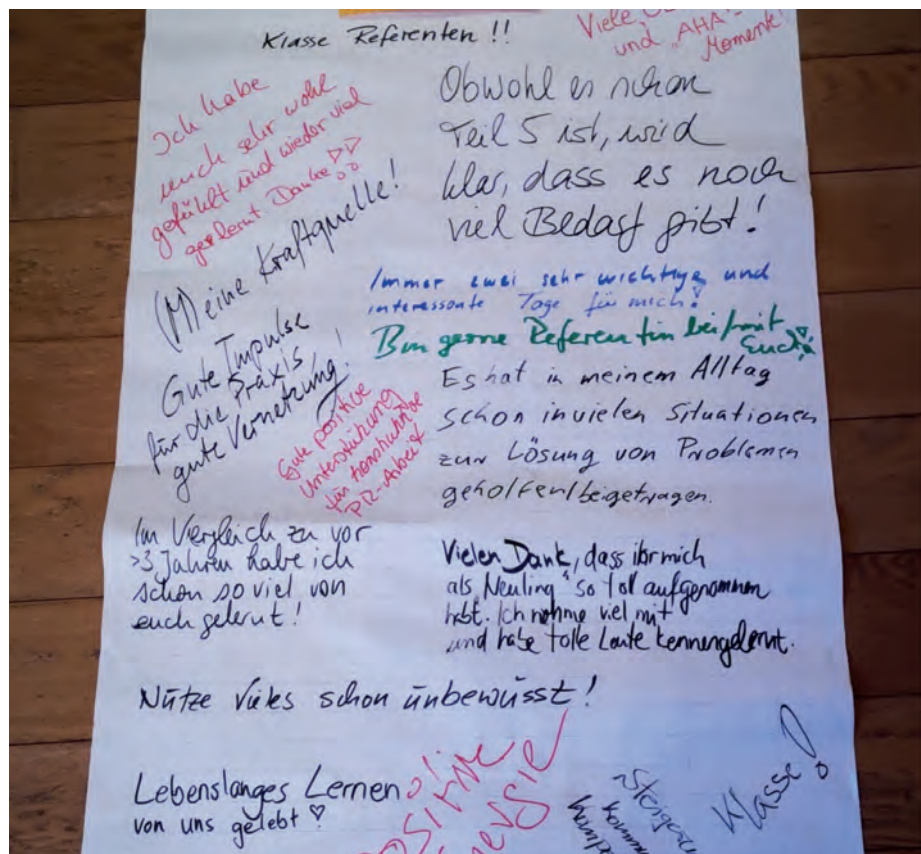 Klasse Referenten !!
Viele
und „AHA"-
Momente!
Ich habe
mich sehr wohl
gefühlt und wieder viel
gelernt Danke!!
Obwohl es schon
Teil 5 ist, wird
klar, dass es noch
viel Bedarf gibt!
(M)eine Kraftquelle!
Immer zwei sehr wichtige und
interessante Tage für mich!
Bin gerne Referentin bei/mit
Euch!
Gute Impulse
für die Praxis,
gute Vernetzung!
Gute positive
Unterstützung
für
PR-Arbeit
Es hat in meinem Alltag
schon in vielen Situationen
zur Lösung von Problemen
geholfen/beigetragen.
Im Vergleich zu vor
>3 Jahren habe ich
schon so viel von
euch gelernt!
Vielen Dank, dass ihr mich
als „Neuling" so toll aufgenommen
habt. Ich nehme viel mit
und habe tolle Leute kennengelernt.
Nutze vieles schon unbewusst!
Lebenslanges Lernen
von uns gelebt ♡
Positive
Energie!
Klasse!